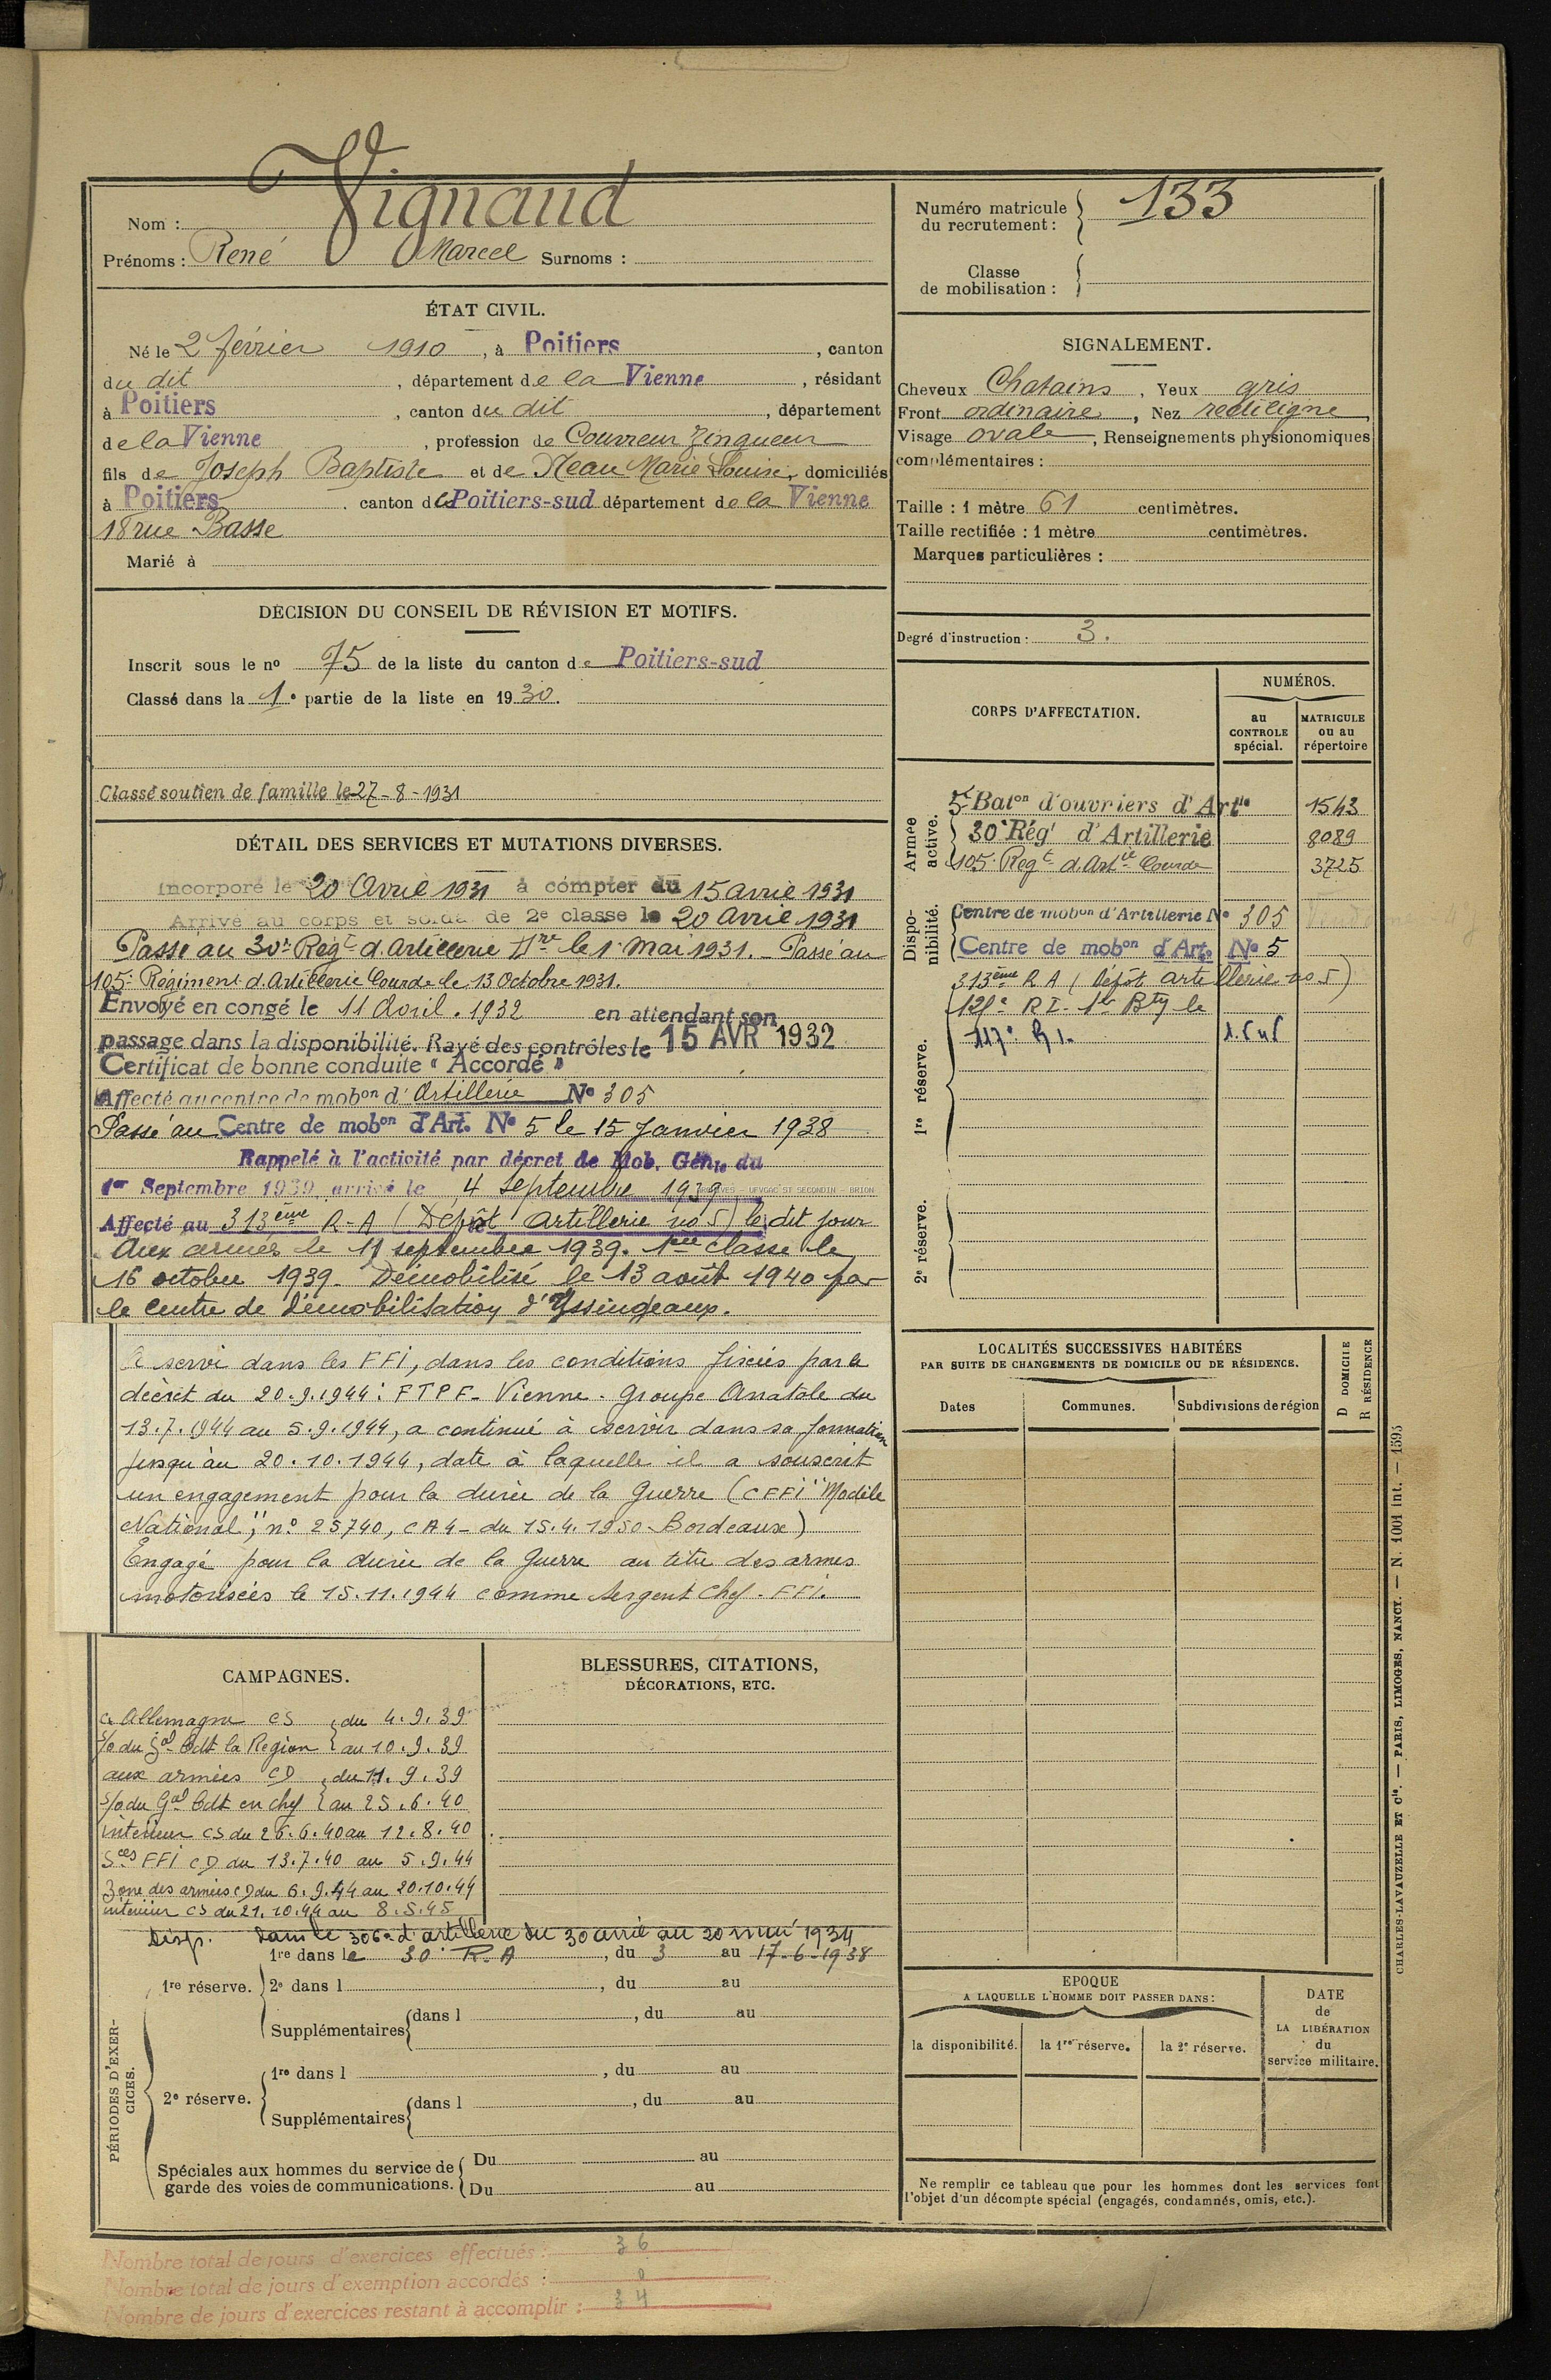 Vignaud
Nom :
Prénoms : René Marcel Surnoms :
ÉTAT CIVIL.
Né le 2 février 1910, à Poitiers, canton
du dit, département de la Vienne, résidant
à Poitiers, canton du dit, département
de la Vienne, profession de Couvreur Zingueur
fils de Joseph Baptiste et de Neau Marie Louise, domiciliés
à Poitiers, canton de Poitiers-sud département de la Vienne
18 rue Basse
Marié à
DÉCISION DU CONSEIL DE RÉVISION ET MOTIFS.
Inscrit sous le no 75 de la liste du canton de Poitiers-sud
Classé dans la 1e partie de la liste en 1930.
Classé soutien de famille le 27-8-1931
DÉTAIL DES SERVICES ET MUTATIONS DIVERSES.
incorporé le 20 Avril 1931 à compter du 15 avril 1931
Arrivé au corps et soldat de 2e classe le 20 avril 1931
Passé au 30e Régt d'Artillerie le 1 Mai 1931. - Passé au
105e Régiment d'Artillerie Lourde le 13 Octobre 1931.
Envoyé en congé le 11 Avril. 1932 en attendant son
passage dans la disponibilité. Rayé des contrôles le 15 AVR 1932
Certificat de bonne conduite "Accordé"
Affecté au centre de mobon d'Artillerie No 305
Passé au Centre de mobon d'Art. No 5 le 15 Janvier 1938
Rappelé à l'activité par décret de Mob. Génle du
1er Septembre 1939 arrivé le 4 septembre 1939
ARCHIVES - UFVGAC ST SECONDIN - BRION
Affecté au 313ème R-A (Dépôt Artillerie no 5) le dit jour
Aux armées le 11 septembre 1939. 1ère classe le
16 octobre 1939. Démobilisé le 13 août 1940 par
le centre de démobilisation d'Yssingeaux.
A servi dans les FFI, dans les conditions fixées par le
décret du 20.9.1944 : FTPF - Vienne - Groupe Anatole du
13.7.1944 au 5.9.1944, a continué à servir dans sa formation
jusqu'au 20.10.1944, date à laquelle il a souscrit
un engagement pour la durée de la Guerre (CFFI "Modèle
National", no 25740, CA4 - du 15.4.1950 Bordeaux)
Engagé pour la durée de la Guerre au titre des armes
motorisées le 15.11.1944 comme Sergent Chef - FFI.
CAMPAGNES.
c. Allemagne CS du 4.9.39
s/o du Gal Cdt la Région au 10.9.39
aux armées CD du 11.9.39
s/o du Gal Cdt en chef au 25.6.40
intérieur CS du 26.6.40 au 12.8.40
Sces FFI CD du 13.7.40 au 5.9.44
Zone des armées CD du 6.9.44 au 20.10.44
intérieur CS du 21.10.44 au 8.5.45
BLESSURES, CITATIONS,
DÉCORATIONS, ETC.
PÉRIODES D'EXERCICES.
Disp. dans le 306e d'artillerie du 30 avril au 20 mai 1934
1re réserve.
1re dans le 30e R. A, du 3 au 17-6-1938
2e dans l, du au
Supplémentaires dans l, du au
2e réserve.
1re dans l, du au
Supplémentaires dans l, du au
Spéciales aux hommes du service de
garde des voies de communications.
Du au
Du au
Nombre total de jours d'exercices effectués : 36
Nombre total de jours d'exemption accordés : 0
Nombre de jours d'exercices restant à accomplir : 34
Numéro matricule
du recrutement : 133
Classe
de mobilisation :
SIGNALEMENT.
Cheveux Chatains, Yeux gris
Front ordinaire, Nez rectiligne
Visage ovale, Renseignements physionomiques
complémentaires :
Taille : 1 mètre 61 centimètres.
Taille rectifiée : 1 mètre centimètres.
Marques particulières :
Degré d'instruction : 3.
CORPS D'AFFECTATION.
NUMÉROS.
au
CONTROLE
spécial.
MATRICULE
ou au
répertoire
Armée active.
5e Baton d'ouvriers d'Artie 1543
30e Régt d'Artillerie 8089
105e Regt d'Artie Lourde 3725
Disponibilité.
Centre de mobon d'Artillerie No 305
Centre de mobon d'Art. No 5
313ème R A (Dépôt artillerie no 5)
1re réserve.
117e RI.
2e réserve.
LOCALITÉS SUCCESSIVES HABITÉES
PAR SUITE DE CHANGEMENTS DE DOMICILE OU DE RÉSIDENCE.
D DOMICILE
R RÉSIDENCE
Dates
Communes.
Subdivisions de région
EPOQUE
A LAQUELLE L'HOMME DOIT PASSER DANS :
la disponibilité.
la 1re réserve.
la 2e réserve.
DATE
de
LA LIBÉRATION
du
service militaire.
Ne remplir ce tableau que pour les hommes dont les services font
l'objet d'un décompte spécial (engagés, condamnés, omis, etc.).
CHARLES-LAVAUZELLE ET Cie. — PARIS, LIMOGES, NANCY. — N. 1001 Int. — 1595